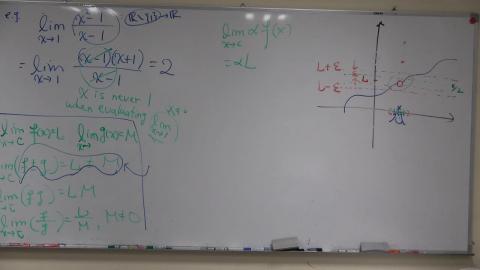 e.g.
lim x→1 (x²-1)/(x-1)
ℝ\{1}→ℝ
= lim x→1 (x-1)(x+1)/(x-1) = 2
x is never 1
when evaluating lim x→1
lim x→c f(x)=L lim g(x)=M
lim x→c (f+g)=L+M
lim x→c (fg)=LM
lim x→c (f/g)=L/M, M≠0
lim x→c αf(x)
=αL
L+ε
L
L-ε